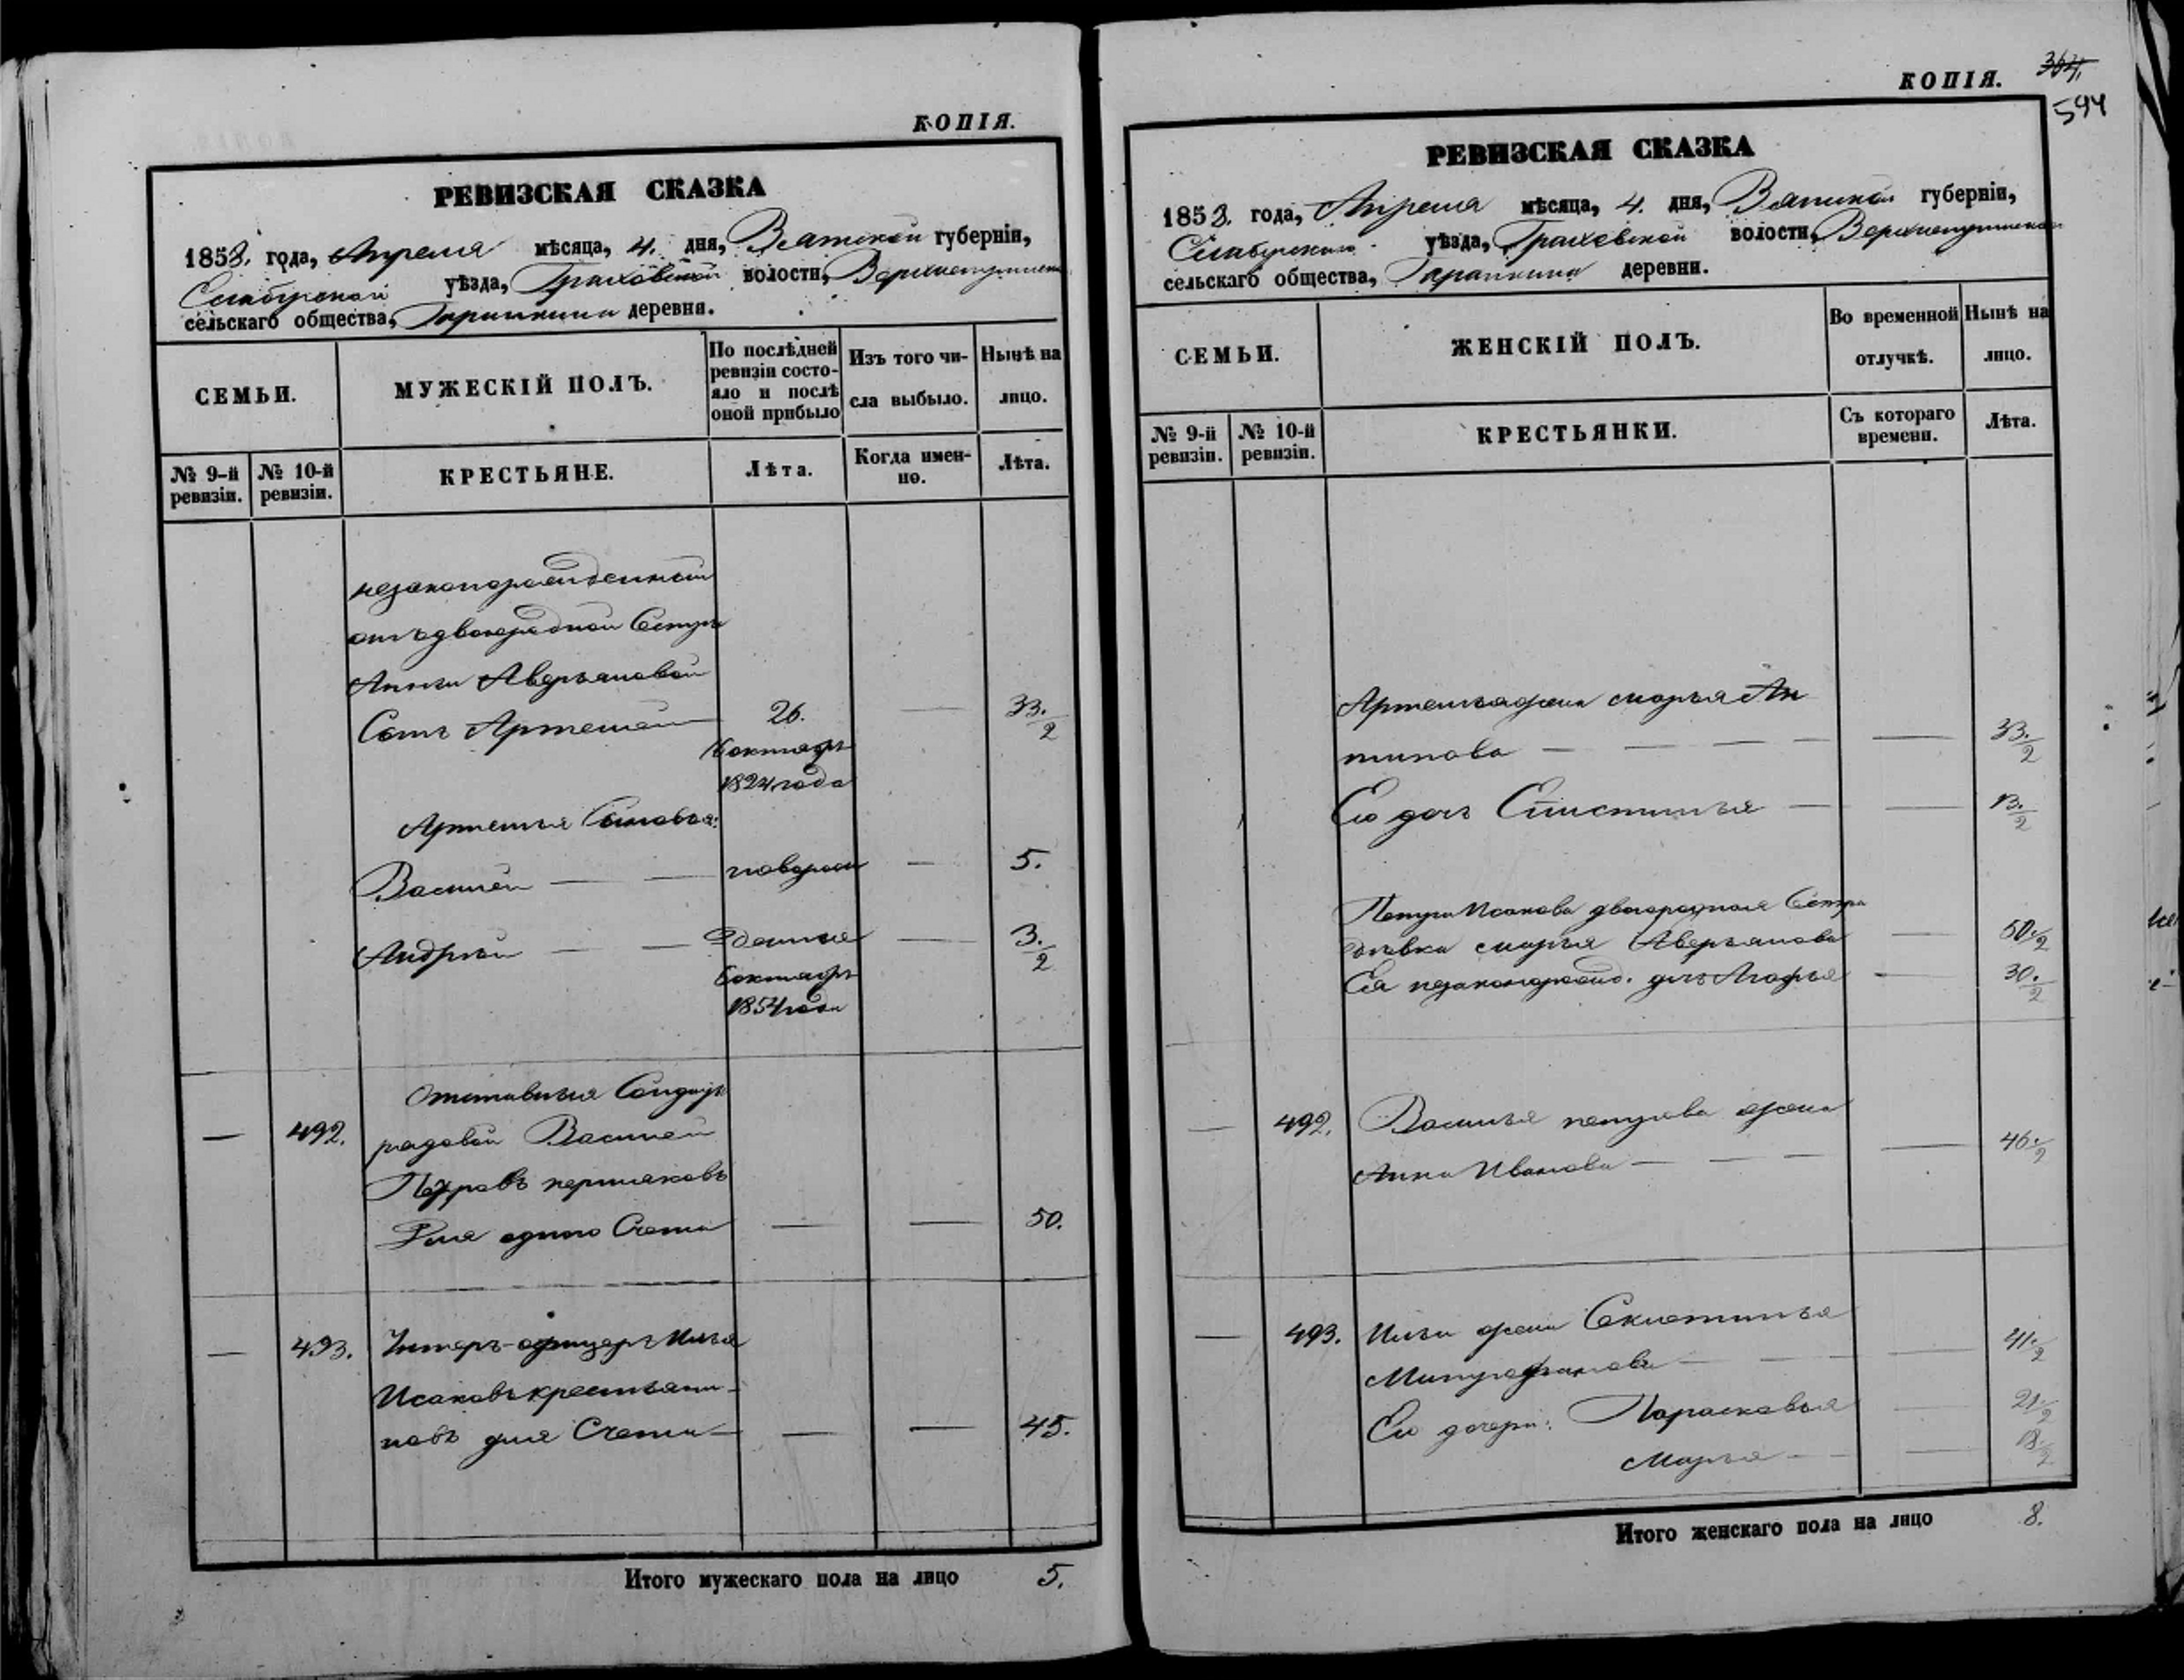 КОПІЯ.
РЕВИЗСКАЯ СКАЗКА
1858. года, Апреля мѣсяца, 4. дня, Вятской губерніи,
Елабугской уѣзда, Граховской волости,
сельскаго общества, деревни.
СЕМЬИ.
МУЖЕСКІЙ ПОЛЪ.
По послѣдней ревизіи состо-
яло и послѣ
оной прибыло
Изъ того чи-
сла выбыло.
Нынѣ на
лицо.
№ 9-й
ревизіи.
№ 10-й
ревизіи.
КРЕСТЬЯНЕ.
Лѣта.
Когда имен-
но.
Лѣта.
незаконорожденный
отъ двоюродной Сестры
Анны Аверьяновой
Сынъ Артемей 26. — 33.½
6 октября
1824 года
Артемья Сыновья:
Василей — — новорож — 5.
Андрей — — денные — 3.½
6 октября
1854 года
— 492. Отставныя Солдаты
рядовой Василей
Петровъ пермяковъ
Для одного Счета — — 50.
— 493. Унтеръ-офицеръ Илья
Исаковъ крестьяни-
новъ для Счета — — — 45.
Итого мужескаго пола на лицо 5.
КОПІЯ.
364.
594
РЕВИЗСКАЯ СКАЗКА
1858. года, Апреля мѣсяца, 4. дня, Вятской губерніи,
Елабугскаго уѣзда, Граховской волости,
сельскаго общества, деревни.
СЕМЬИ.
ЖЕНСКІЙ ПОЛЪ.
Во временной
отлучкѣ.
Нынѣ на
лицо.
№ 9-й
ревизіи.
№ 10-й
ревизіи.
КРЕСТЬЯНКИ.
Съ котораго
времени.
Лѣта.
Артемья жена Марья Ан
типова — — — — — 33.½
Ево дочь — — 13.½
Петра Исакова двоюродная Сестра
девка Марья Аверьянова — 50.½
Ея незаконорожд. дочь Агафья — 30.½
— 492. Василья петрова жена
Анна Иванова — — — — 46.½
— 493. Ильи жена Секлетинья
Митрофанова — — — 41.½
Ево дочери: Парасковья — 21.½
Марья — — — 18.½
Итого женскаго пола на лицо 8.